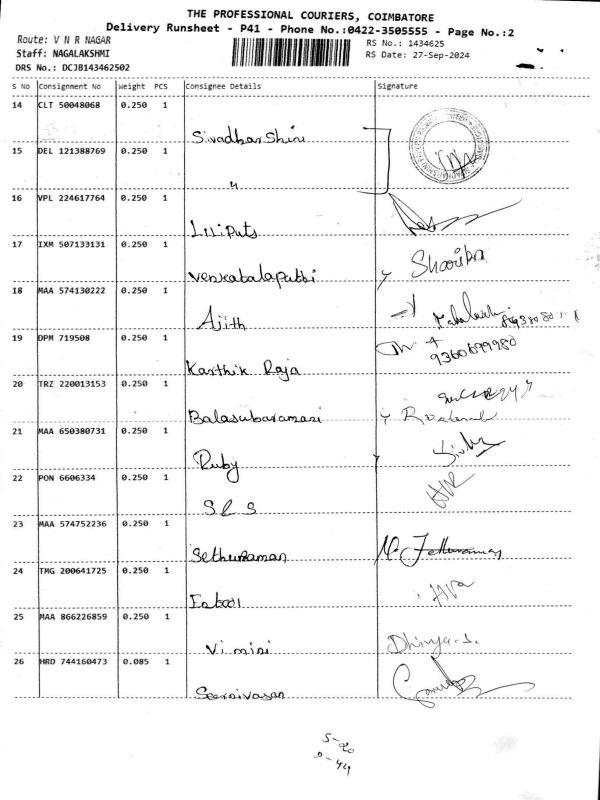 THE PROFESSIONAL COURIERS, COIMBATORE
Delivery Runsheet - P41 - Phone No.:0422-3505555 - Page No.:2
Route: V N R NAGAR
RS No.: 1434625
Staff: NAGALAKSHMI
RS Date: 27-Sep-2024
DRS No.: DCJB143462502
S No Consignment No Weight PCS Consignee Details Signature
14 CLT 50048068 0.250 1
Sivadharshini
15 DEL 121388769 0.250 1
"
16 VPL 224617764 0.250 1
Liliputs
17 IXM 507133131 0.250 1
Venkatalaputhi Shoorika
18 MAA 574130222 0.250 1
Ajith
19 DPM 719508 0.250 1
9360699980
Karthik Raja
20 TRZ 220013153 0.250 1
Balasubaramani
21 MAA 650380731 0.250 1
Ruby
22 PON 6606334 0.250 1
S R S
23 MAA 574752236 0.250 1
Sethuraman
24 TMG 200641725 0.250 1
25 MAA 866226859 0.250 1
Vimini Dhivya.S.
26 HRD 744160473 0.085 1
Seenivasan
S-20
D-44